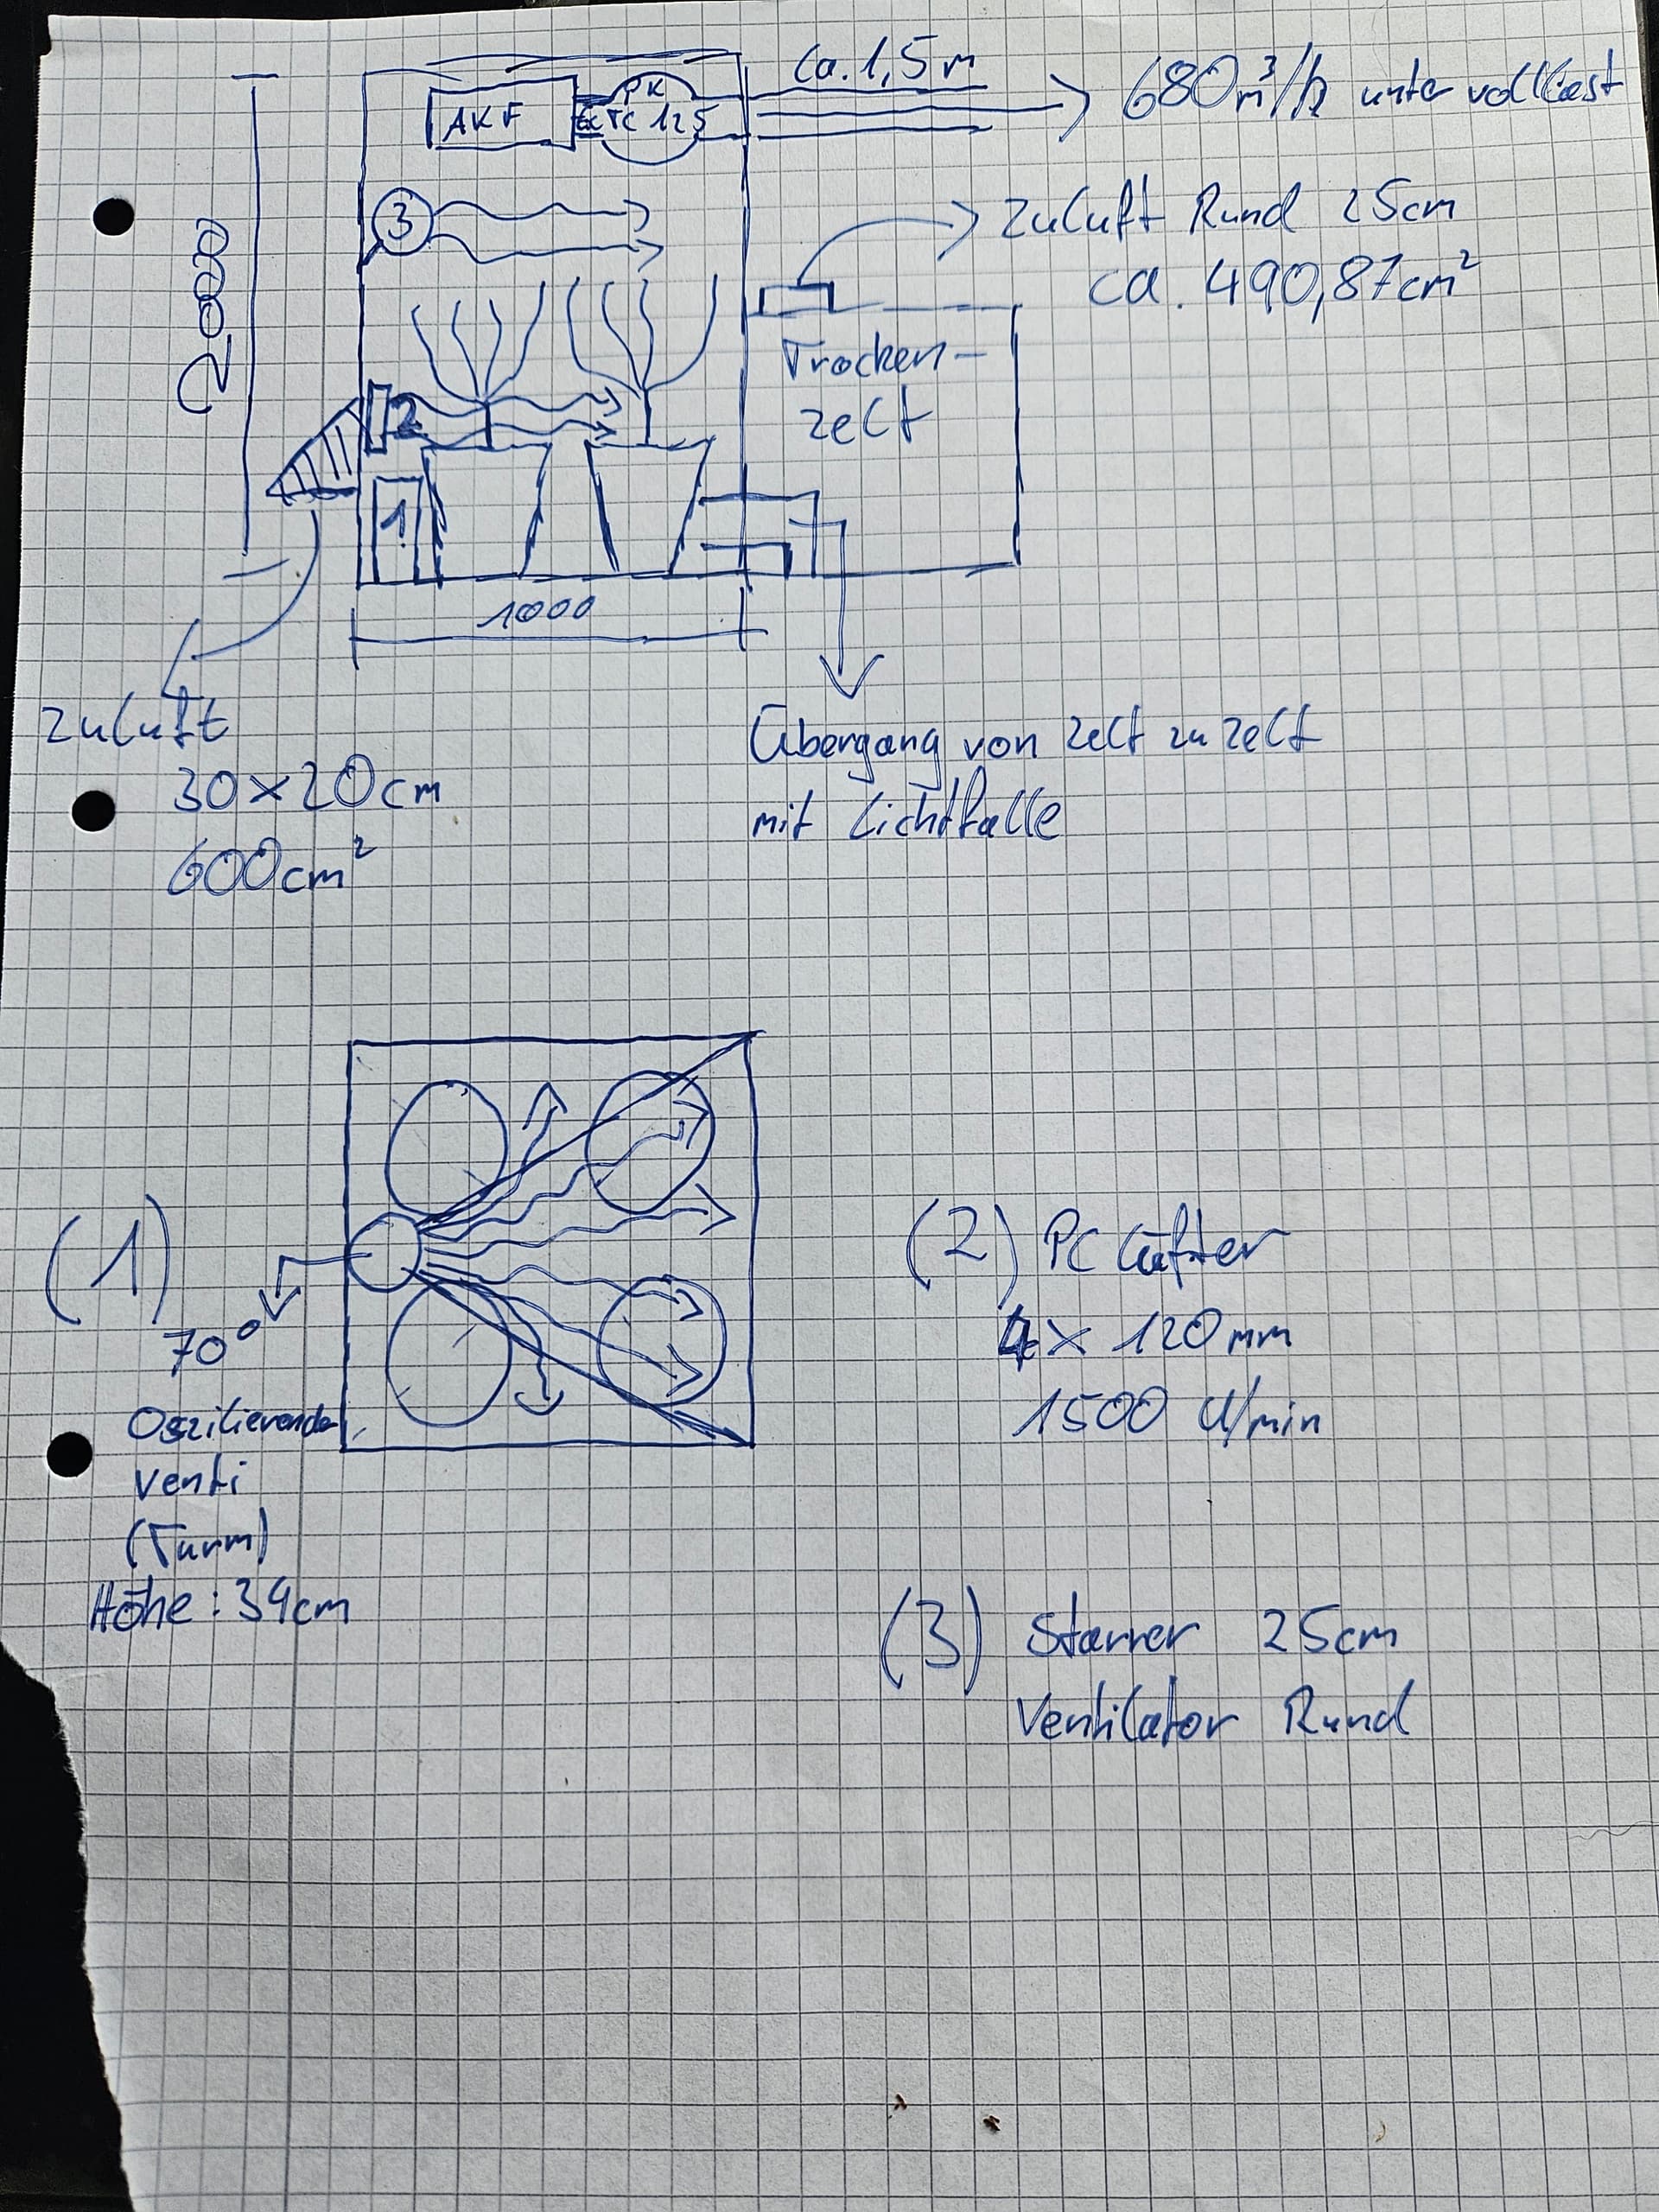 ca. 1,5 m
680 m³/h unter volllast
AKF
PK
EC TC 125
3
Zuluft Rund 25cm
ca. 490,87cm²
2000
Trocken-
zelt
2
1
1000
Zuluft
30x20cm
600cm²
Übergang von Zelt zu Zelt
mit Lichtfalle
(1)
70°
Oszilierender
Venti
(Turm)
Höhe: 34cm
(2) PC Lüfter
4x 120mm
1500 U/min
(3) Starrer 25cm
Ventilator Rund